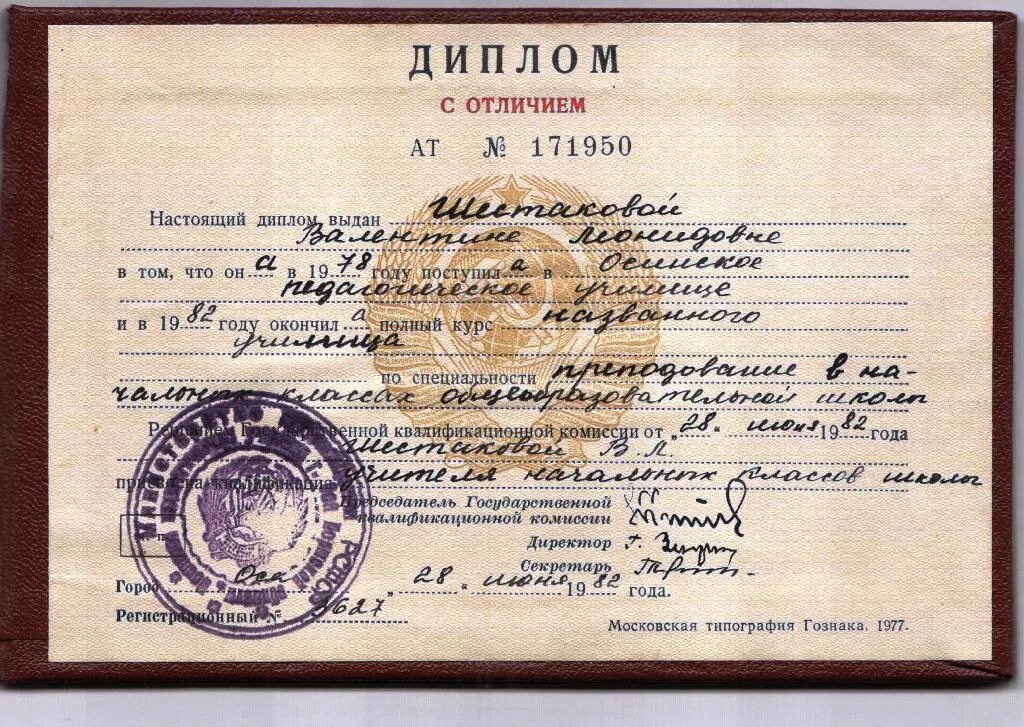 ДИПЛОМ
С ОТЛИЧИЕМ
АТ № 171950
Настоящий диплом выдан Шестаковой
Валентине Леонидовне
в том, что он а в 1978 году поступил а в Осинское
педагогическое училище
и в 1982 году окончил а полный курс названного
училища
по специальности преподование в на-
чальных классах общеобразовательной школы
Решением Государственной квалификационной комиссии от „28" июня 1982 года
Шестаковой В.Л.
присвоена квалификация учителя начальных классов школы
Председатель Государственной
квалификационной комиссии
Директор
Секретарь
Город Оса „28" июня 1982 года.
Регистрационный № 3627
Московская типография Гознака. 1977.
МИНИСТЕРСТВО РСФСР